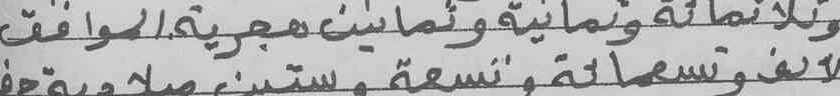 وثلاثمائة وثمانية وثمانين هجرية الموافق
لألف وتسعمائة وتسعة وستين ميلادية حفـ